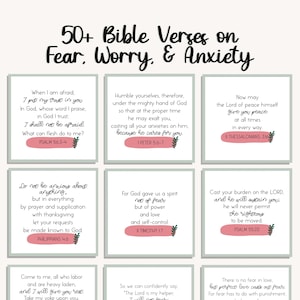 50+ Bible Verses on
Fear, Worry, & Anxiety
When I am afraid,
I put my trust in you
In God, whose word I praise,
in God I trust;
I shall not be afraid.
What can flesh do to me?
PSALM 56:3-4
Humble yourselves, therefore,
under the mighty hand of God
so that at the proper time
he may exalt you,
casting all your anxieties on him,
because he cares for you
1 PETER 5:6-7
Now may
the Lord of peace himself
give you peace
at all times
in every way
2 THESSALONIANS 3:16
Do not be anxious about
anything,
but in everything
by prayer and supplication
with thanksgiving
let your requests
be made known to God
PHILIPPIANS 4:6
For God gave us a spirit
not of fear
but of power
and love
and self-control
2 TIMOTHY 1:7
Cast your burden on the LORD,
and he will sustain you;
he will never permit
the righteous
to be moved.
PSALM 55:22
Come to me, all who labor
and are heavy laden,
and I will give you rest.
Take my yoke upon you,
So we can confidently say,
"The Lord is my helper;
There is no fear in love,
but perfect love casts out fear.
for fear has to do with punishment